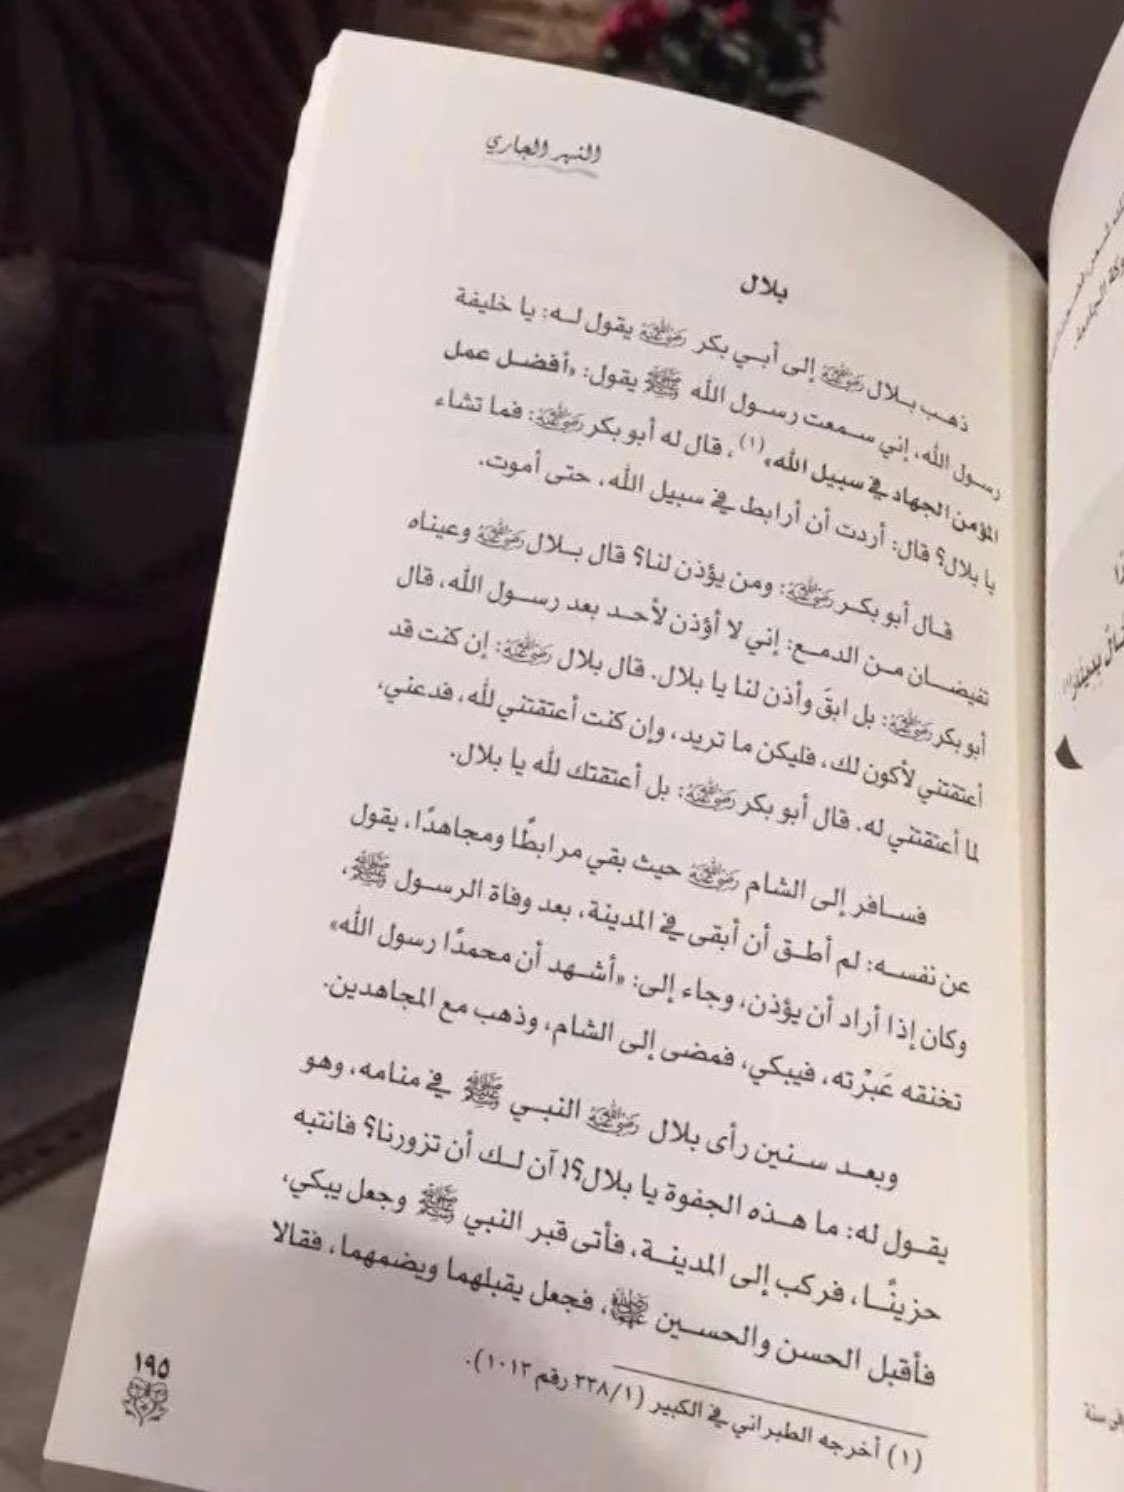 النهر الجاري
بلال
ذهب بلال رضي الله عنه إلى أبي بكر رضي الله عنه يقول له: يا خليفة
رسول الله، إني سمعت رسول الله ﷺ يقول: «أفضل عمل
المؤمن الجهاد في سبيل الله»(١)، قال له أبو بكر رضي الله عنه: فما تشاء
يا بلال؟ قال: أردت أن أرابط في سبيل الله، حتى أموت.
قال أبو بكر رضي الله عنه: ومن يؤذن لنا؟ قال بلال رضي الله عنه وعيناه
تفيضان من الدمع: إني لا أؤذن لأحد بعد رسول الله، قال
أبو بكر رضي الله عنه: بل ابقَ وأذن لنا يا بلال. قال بلال رضي الله عنه: إن كنت قد
أعتقتني لأكون لك، فليكن ما تريد، وإن كنت أعتقتني لله، فدعني،
لما أعتقتني له. قال أبو بكر رضي الله عنه: بل أعتقتك لله يا بلال.
فسافر إلى الشام رضي الله عنه حيث بقي مرابطًا ومجاهدًا، يقول
عن نفسه: لم أطق أن أبقى في المدينة، بعد وفاة الرسول ﷺ،
وكان إذا أراد أن يؤذن، وجاء إلى: «أشهد أن محمدًا رسول الله»
تخنقه عَبرْته، فيبكي، فمضى إلى الشام، وذهب مع المجاهدين.
وبعد سنين رأى بلال رضي الله عنه النبي ﷺ في منامه، وهو
يقول له: ما هذه الجفوة يا بلال؟! آن لك أن تزورنا؟ فانتبه
حزينًا، فركب إلى المدينة، فأتى قبر النبي ﷺ وجعل يبكي،
فأقبل الحسن والحسين رضي الله عنهما، فجعل يقبلهما ويضمهما، فقالا
(١) أخرجه الطبراني في الكبير (٣٣٨/١ رقم ١٠١٣).
١٩٥